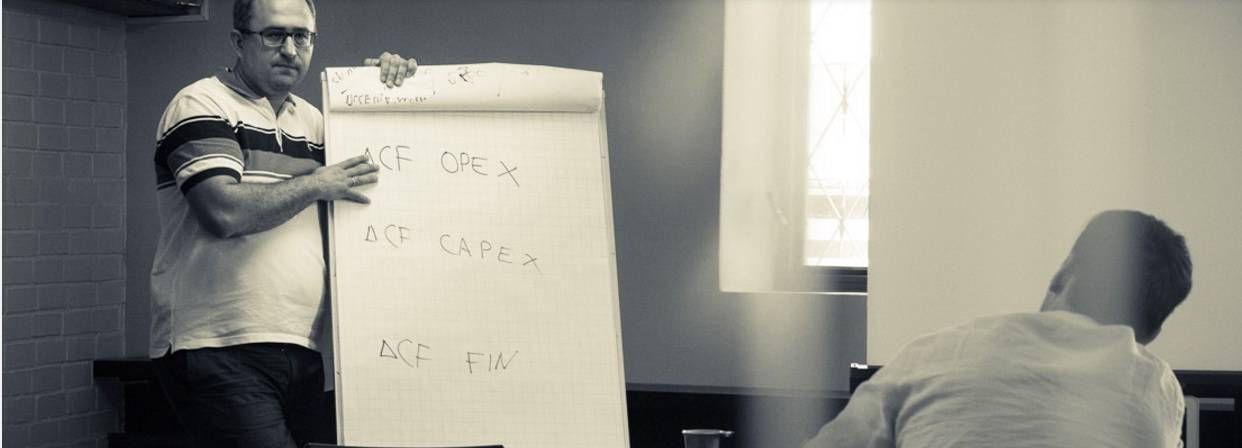 ΔCF OPEX
ΔCF CAPEX
ΔCF FIN